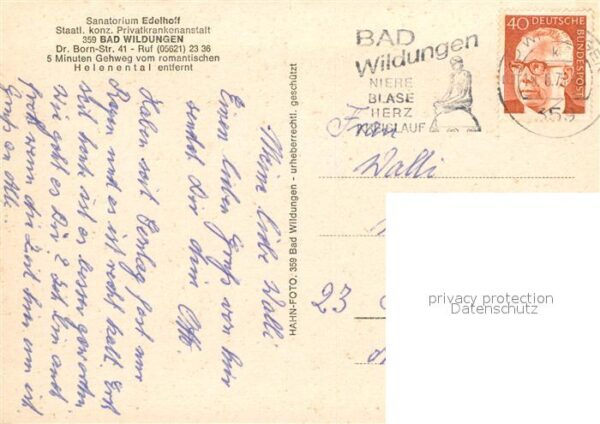 Sanatorium Edelhoff
Staatl. konz. Privatkrankenanstalt
359 BAD WILDUNGEN
Dr. Born-Str. 41 - Ruf (05621) 23 36
5 Minuten Gehweg vom romantischen
Helenental entfernt
Meine liebe Walli
Einen lieben Gruß von hir
sendet Dir dein Otto.
Haben seit fast nur
Regen und es ist recht kalt. Erst
seit heute ist es besser geworden
Wie geht es Dir? Ich bin auch
froh wenn die Zeit hier um ist
Gruß an Alle.
HAHN-FOTO. 359 Bad Wildungen - urheberrechtl. geschützt
BAD
Wildungen
NIERE
BLASE
HERZ
KREISLAUF
359
40 DEUTSCHE BUNDESPOST
Frau
Walli
23
privacy protection
Datenschutz